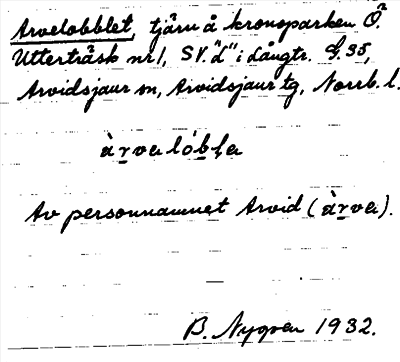 Arvelobblet, tjärn å kronoparken Ö.
Utterträsk nr 1, SV. "L" i Långtr. G. 35,
Arvidsjaur sn, Arvidsjaur tg, Norrb. l.
àrvalóbla
Av personnamnet Arvid (àrva).
B. Nygren 1932.